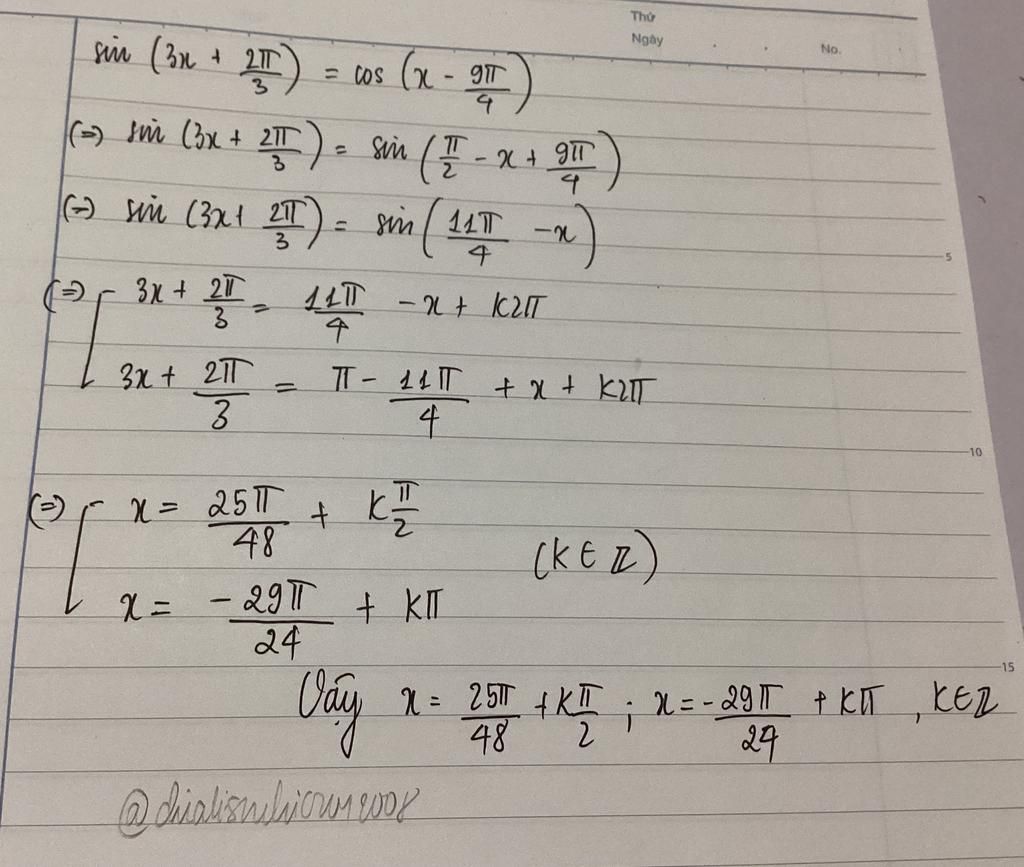 Thứ
Ngày . . No. .
sin (3x + 2π/3) = cos (x - 9π/4)
(=) sin (3x + 2π/3) = sin (π/2 - x + 9π/4)
(=) sin (3x + 2π/3) = sin (11π/4 - x)
5
(=) [ 3x + 2π/3 = 11π/4 - x + K2π
3x + 2π/3 = π - 11π/4 + x + K2π
10
(=) [ x = 25π/48 + Kπ/2
(K ∈ Z)
x = -29π/24 + Kπ
15
Vậy x = 25π/48 + Kπ/2 ; x = -29π/24 + Kπ , K∈Z